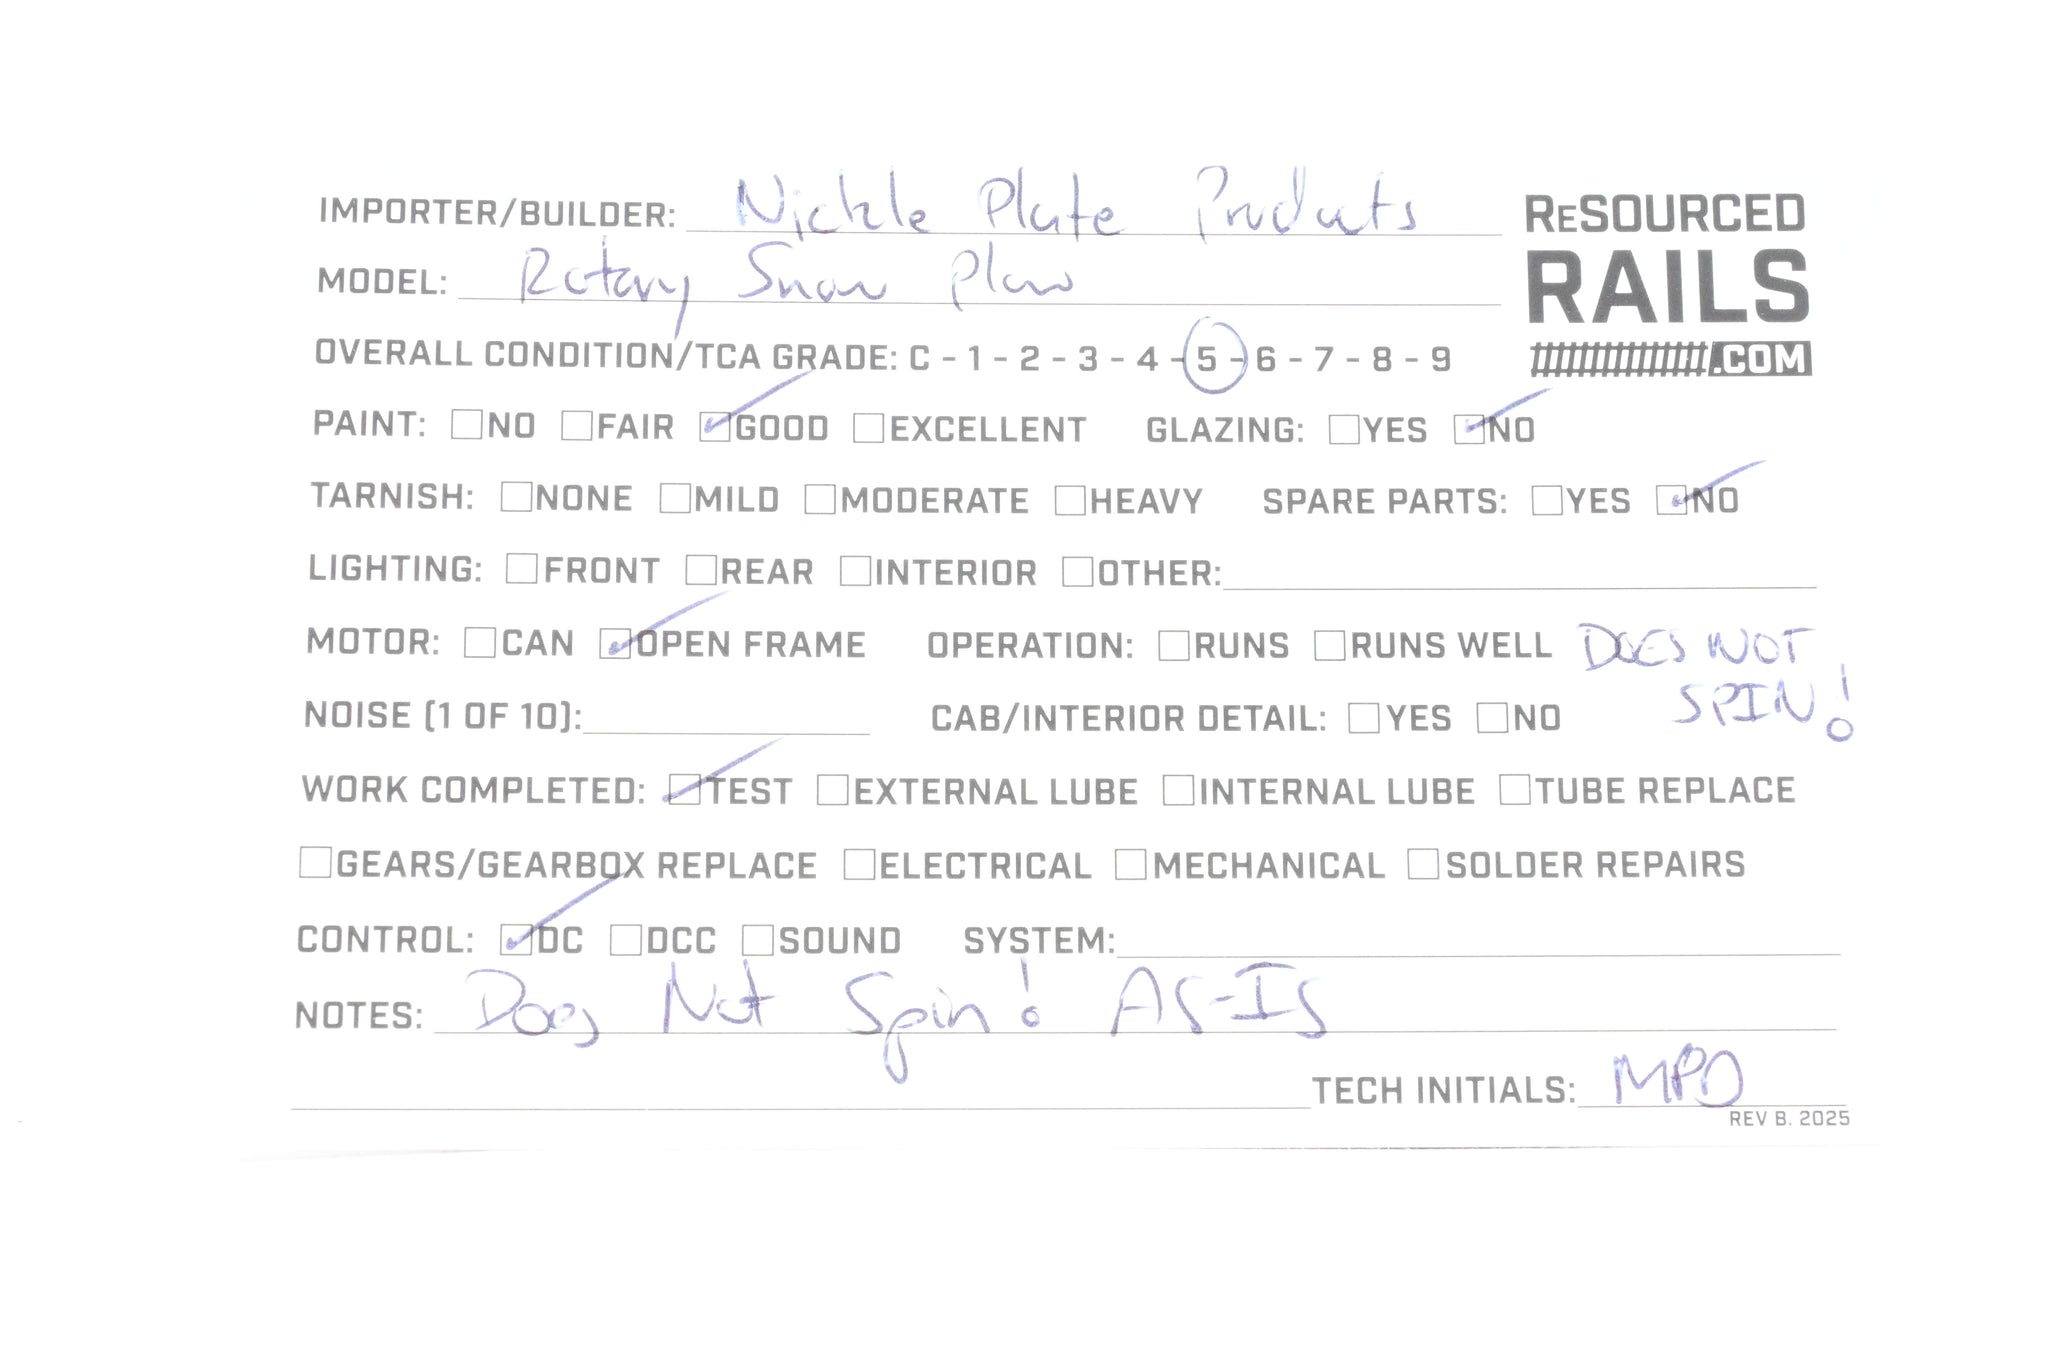 IMPORTER/BUILDER: Nickle Plate Products
ReSOURCED
RAILS
.COM
MODEL: Rotary Snow Plow
OVERALL CONDITION/TCA GRADE: C - 1 - 2 - 3 - 4 - 5 - 6 - 7 - 8 - 9
PAINT: NO FAIR GOOD EXCELLENT GLAZING: YES NO
TARNISH: NONE MILD MODERATE HEAVY SPARE PARTS: YES NO
LIGHTING: FRONT REAR INTERIOR OTHER:
MOTOR: CAN OPEN FRAME OPERATION: RUNS RUNS WELL DOES NOT
SPIN!
NOISE (1 OF 10): CAB/INTERIOR DETAIL: YES NO
WORK COMPLETED: TEST EXTERNAL LUBE INTERNAL LUBE TUBE REPLACE
GEARS/GEARBOX REPLACE ELECTRICAL MECHANICAL SOLDER REPAIRS
CONTROL: DC DCC SOUND SYSTEM:
NOTES: Does Not Spin! AS-IS
TECH INITIALS: MPD
REV B. 2025